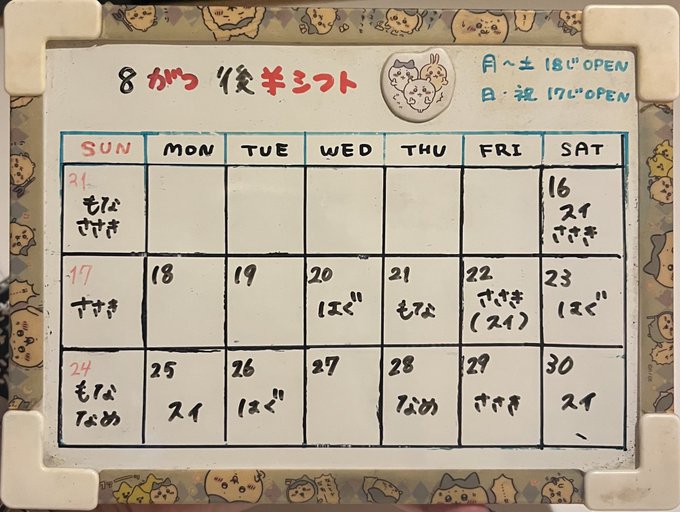 8 がつ 後半シフト
月～土 18じOPEN
日・祝 17じOPEN
SUN MON TUE WED THU FRI SAT
31
もな
ささき
16
スイ
ささき
17
ささき
18
19
20
はぐ
21
もな
22
ささき
(スイ)
23
はぐ
24
もな
なめ
25
スイ
26
はぐ
27
28
なめ
29
ささき
30
スイ